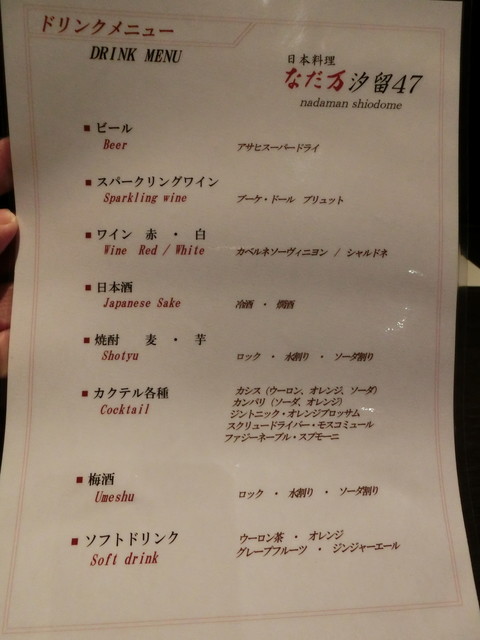 ドリンクメニュー
DRINK MENU
日本料理
なだ万 汐留47
nadaman shiodome
■ ビール
Beer
アサヒスーパードライ
■ スパークリングワイン
Sparkling wine
ブーケ・ドール ブリュット
■ ワイン 赤 ・ 白
Wine Red / White
カベルネソーヴィニヨン / シャルドネ
■ 日本酒
Japanese Sake
冷酒 ・ 燗酒
■ 焼酎 麦 ・ 芋
Shotyu
ロック ・ 水割り ・ ソーダ割り
■ カクテル各種
Cocktail
カシス（ウーロン、オレンジ、ソーダ）
カンパリ（ソーダ、オレンジ）
ジントニック・オレンジブロッサム
スクリュードライバー・モスコミュール
ファジーネーブル・スプモーニ
■ 梅酒
Umeshu
ロック ・ 水割り ・ ソーダ割り
■ ソフトドリンク
Soft drink
ウーロン茶 ・ オレンジ
グレープフルーツ ・ ジンジャーエール